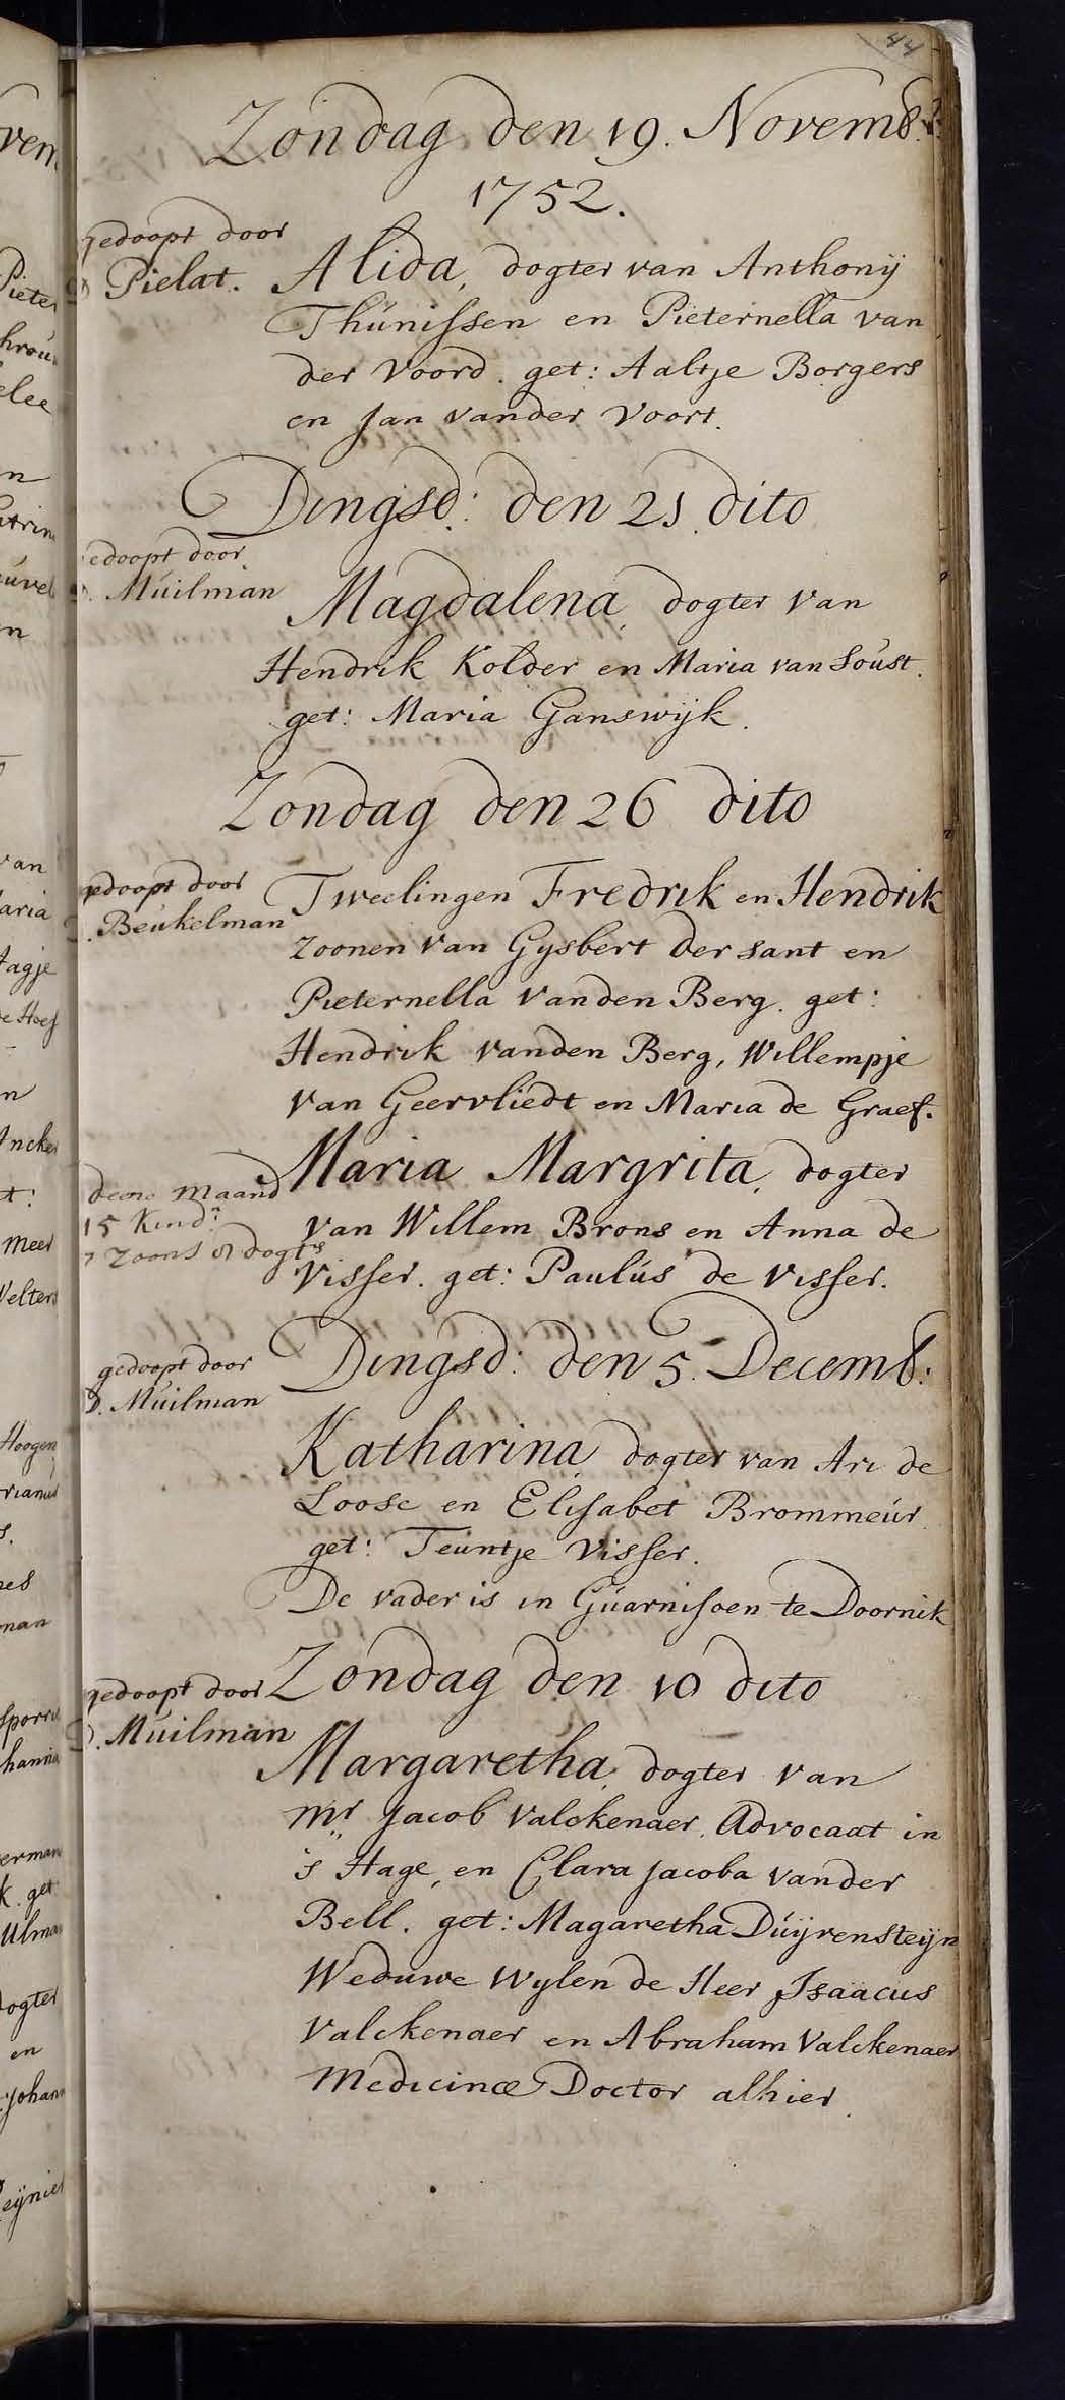 44
Zondag den 19. Novemb:r
1752.
gedoopt door
D Pielat.
Alida, dogter van Anthonij
Thúnissen en Pieternella van
der Voord. get: Aaltje Borgers
en Jan vander Voort.
Dingsd: den 21 dito
gedoopt door
D. Múilman
Magdalena, dogter van
Hendrik Kolder en Maria van Soúst.
get: Maria Ganswijk.
Zondag den 26 dito
gedoopt door
D. Beúkelman
Tweelingen Fredrik en Hendrik
zoonen van Gysbert der sant en
Pieternella vanden Berg. get:
Hendrik vanden Berg, Willempje
van Geervliedt en Maria de Graef.
Maria Margrita, dogter
van Willem Brons en Anna de
Visser. get: Paulús de Visser.
deene maand
15 Kind:
7 Zoons 8 dogt:s
Dingsd: den 5. Decemb:
gedoopt door
D. Múilman
Katharina dogter van Ari de
Loose en Elisabet Brommeúr.
get: Teúntje Visser.
De vader is in Gúarnisoen te Doornik
Zondag den 10 dito
gedoopt door
D. Múilman
Margaretha, dogter van
Mr Jacob Valckenaer. Advocaat in
's Hage, en Clara Jacoba vander
Bell. get: Magaretha Dúijrensteijn
Weduwe Wylen de Heer Isaacus
Valckenaer en Abraham Valckenaer
Medicinæ Doctor alhier.